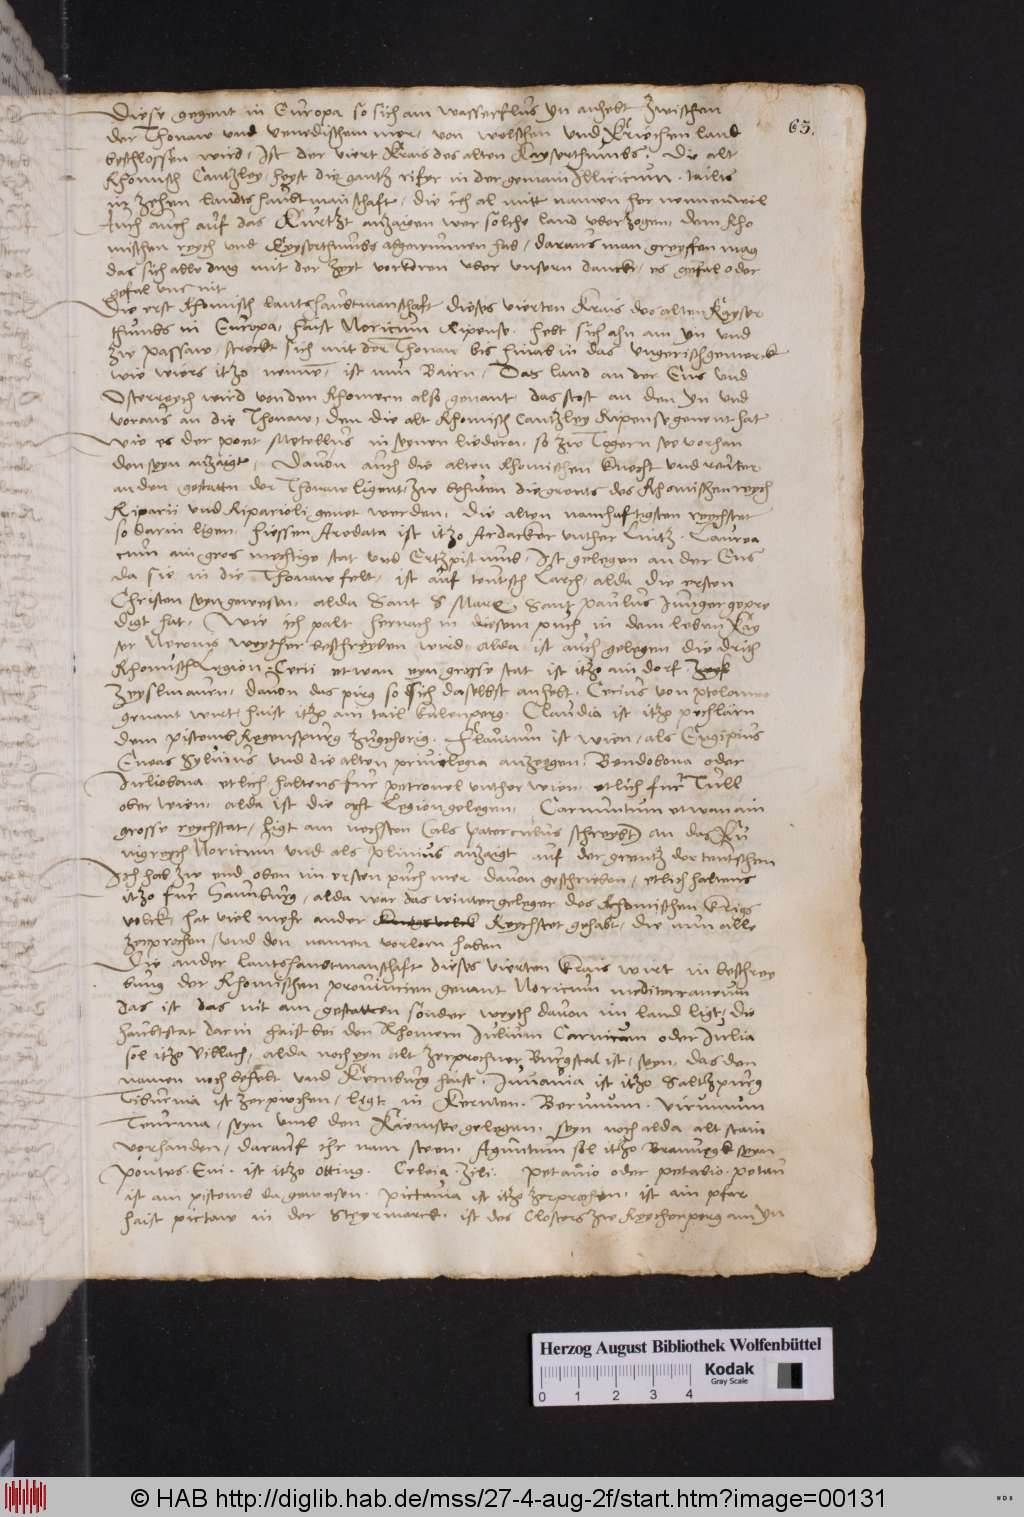 63.
Diese gegent in Europa so sich am wasserflus yn anhebt Zwischen
der Thonaw und venedischem mer, von welschen und Kriechen land
beschlossen wird, Ist der viert Krais des alten Kayserthumbs. Die alt
Rhomisch Cantzley heyst die gantz rifer in der gemain Illiricum. tailts
in Zehen landts haubtmanschaft, die ich al mitt namen her nennen wil
Auch auch auf das Kurtzt anzaigen wer solche land uberzogen, dem Rho
mischen reych und Keyserthumbs abgewunnen hab, daraus man greyffen mag
das sich alle ding mit der Zeyt verkeren uber unsern danck, es gefal oder
gefal uns nit
Die erst Rhomisch lantshaubtmanschaft dieses vierten Krais des alten Kayser
thumbs in Europa, haist Noricum Ripense. hebt sich ahn am yn und
zw passaw, streckt sich mit der Thonaw bis hinab in das Ungerisch gemerck
wie wiers itzo nenne, ist nun Bairn, Das land an der Ens und
Osterreych wird von den Rhomern also genant, das stost an den yn und
voraus an die Thonaw, dem die alt Rhomisch Cantzley Ripense genent hat
wie es der poet Metellus in seynen liedern, so zw Tegernsee vorhan
den seyn anzaigt, Davon auch die alten Rhomischen Knecht und reuter
an den gestatten der Thonaw ligent, zw behuten die grents des Rhomischen reych
Riparii und Riparioli genet werden, die alten namhaftigsten reychstet
so darin ligen, hiessen Aredata ist itzo Ardacker unther Lintz. Laurea
cum ain gros mechtige stat und Ertzpistumb, Ist gelegen an der Ens
da sie in die Thonaw felt, ist auf teutsch Larch, alda die ersten
Christen seyn gewesen, alda Sant S Marx, Sant paulus Junger gepre
digt hat, Wie ich palt hernach in diesem puch in dem leben Kay
ser Neronis weyther beschreyben wird, alda ist auch gelegen die drith
Rhomisch Legion. Cetii etwan eyn grosse stat ist itzo ain dorf
Zeyslmaurn, davon das pirg so sich daselbst anhebt. Cetius von ptolomeo
genant wirt, haist itzo ain tail kalenperg. Claudia ist itzo pechlarn
dem pistumb Regenspurg Zugehorig. Flavium ist wien, als Eugipius
Eneas Sylvius und die alten privilegia anzeygen. Bendobona oder
Juliobona etlich haltens fur petronel unther wien, etlich fur Tull
ober wien, alda ist die acht Legion gelegen, Carnuntum etwan ain
grosse reychstat, ligt am nechsten (als paterculus schreybt) an das Ku
nigreych Noricum und als plinius anzaigt auf der grentz der teutschen
Ich hab zw end oben im ersten puch mer davon geschrieben, etlich haltens
itzo fur Haimburg, alda war das winterge leger des Rhomischen Krigs
volck, hat viel mehr ander Reychstet gehabt, die nun alle
zerprochen, und den namen verlorn haben
Die ander lantshaubtmanschaft dieses vierten Krais wirt in beschrey
bung der Rhomischen provincien genant Noricum mediterraneum
das ist das nit am gestatten sonder weyth davon im land ligt, die
haubtstat darin haist bei den Rhomern Julium Carnicum oder Julia
sol itzo Villach, alda noch eyn alt Zerprochner Burgstal ist, seyn, das den
namen noch behelt und Kernburg haist, Juvavia ist itzo Saltzpurg
Tiburnia ist zerprochen, ligt in Kernten. Berunum. Virunum
Teurnia, seyn umb den Kiemsee gelegen, seyn noch alda alt stain
vorhanden, darauf ihr nam steen. Aguntum sol itzo Brauneck seyn
Pontes Eni. ist itzo Otting. Celeia Zili. petavio oder petabio. petau
ist am pistumb da gewesen. pictavia ist itzo zerprochen, ist ain pfar
haist pictaw in der Steyrmarck, ist des Closters zw Reychenperg am yn
Herzog August Bibliothek Wolfenbüttel
Kodak
Gray Scale
0 1 2 3 4
© HAB http://diglib.hab.de/mss/27-4-aug-2f/start.htm?image=00131